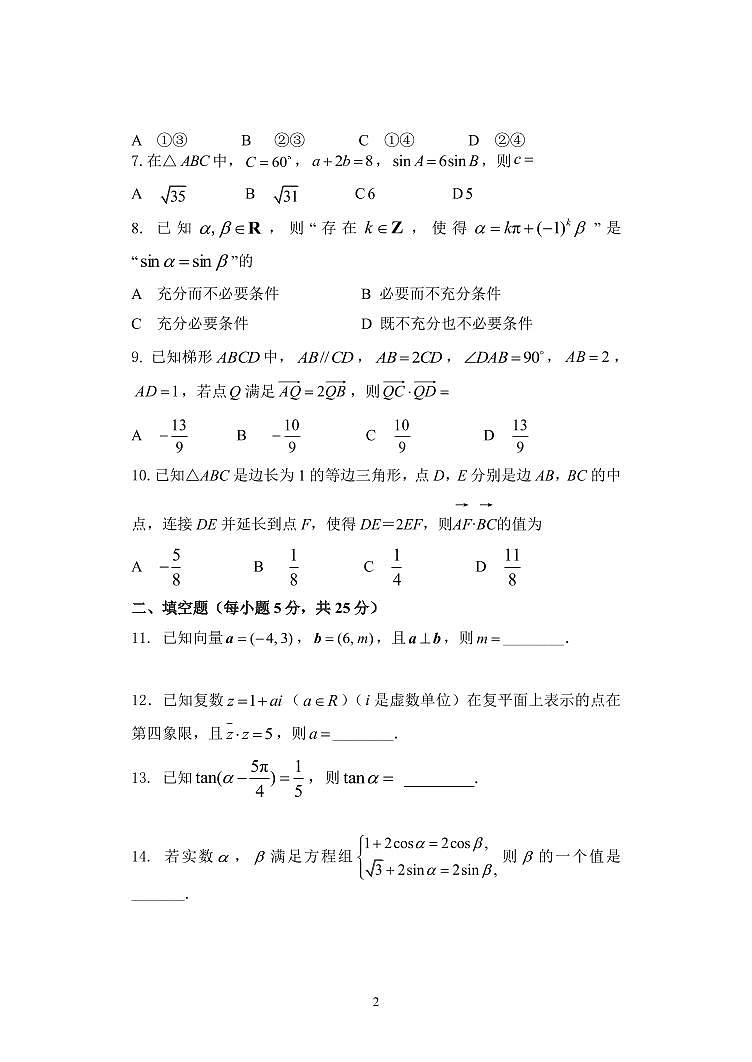 A ①③ B ②③ C ①④ D ②④
7.在△ABC中，C=60°，a+2b=8，sin A=6sin B，则c=
A √35 B √31 C 6 D 5
8. 已知α,β∈R，则“存在k∈Z，使得α=kπ+(−1)^k β”是
“sin α=sin β”的
A 充分而不必要条件 B 必要而不充分条件
C 充分必要条件 D 既不充分也不必要条件
9. 已知梯形ABCD中，AB//CD，AB=2CD，∠DAB=90°，AB=2，
AD=1，若点Q满足→AQ=2→QB，则→QC·→QD=
A −13/9 B −10/9 C 10/9 D 13/9
10.已知△ABC是边长为1的等边三角形，点D，E分别是边AB，BC的中
点，连接DE并延长到点F，使得DE＝2EF，则→AF·→BC的值为
A −5/8 B 1/8 C 1/4 D 11/8
二、填空题（每小题5分，共25分）
11. 已知向量a=(−4,3)，b=(6,m)，且a⊥b，则m=________．
12．已知复数z=1+ai（a∈R）（i是虚数单位）在复平面上表示的点在
第四象限，且z̄·z=5，则a=________．
13. 已知tan(α−5π/4)=1/5，则tan α= _________.
14. 若实数α，β满足方程组{1+2cos α=2cos β, √3+2sin α=2sin β, 则β的一个值是
_______．
2